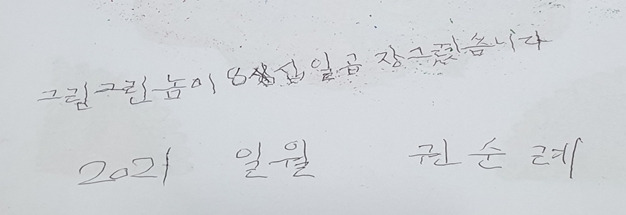 그림그린놈이 8섭일곱 장그렸씀니다
2021 일월 권순례